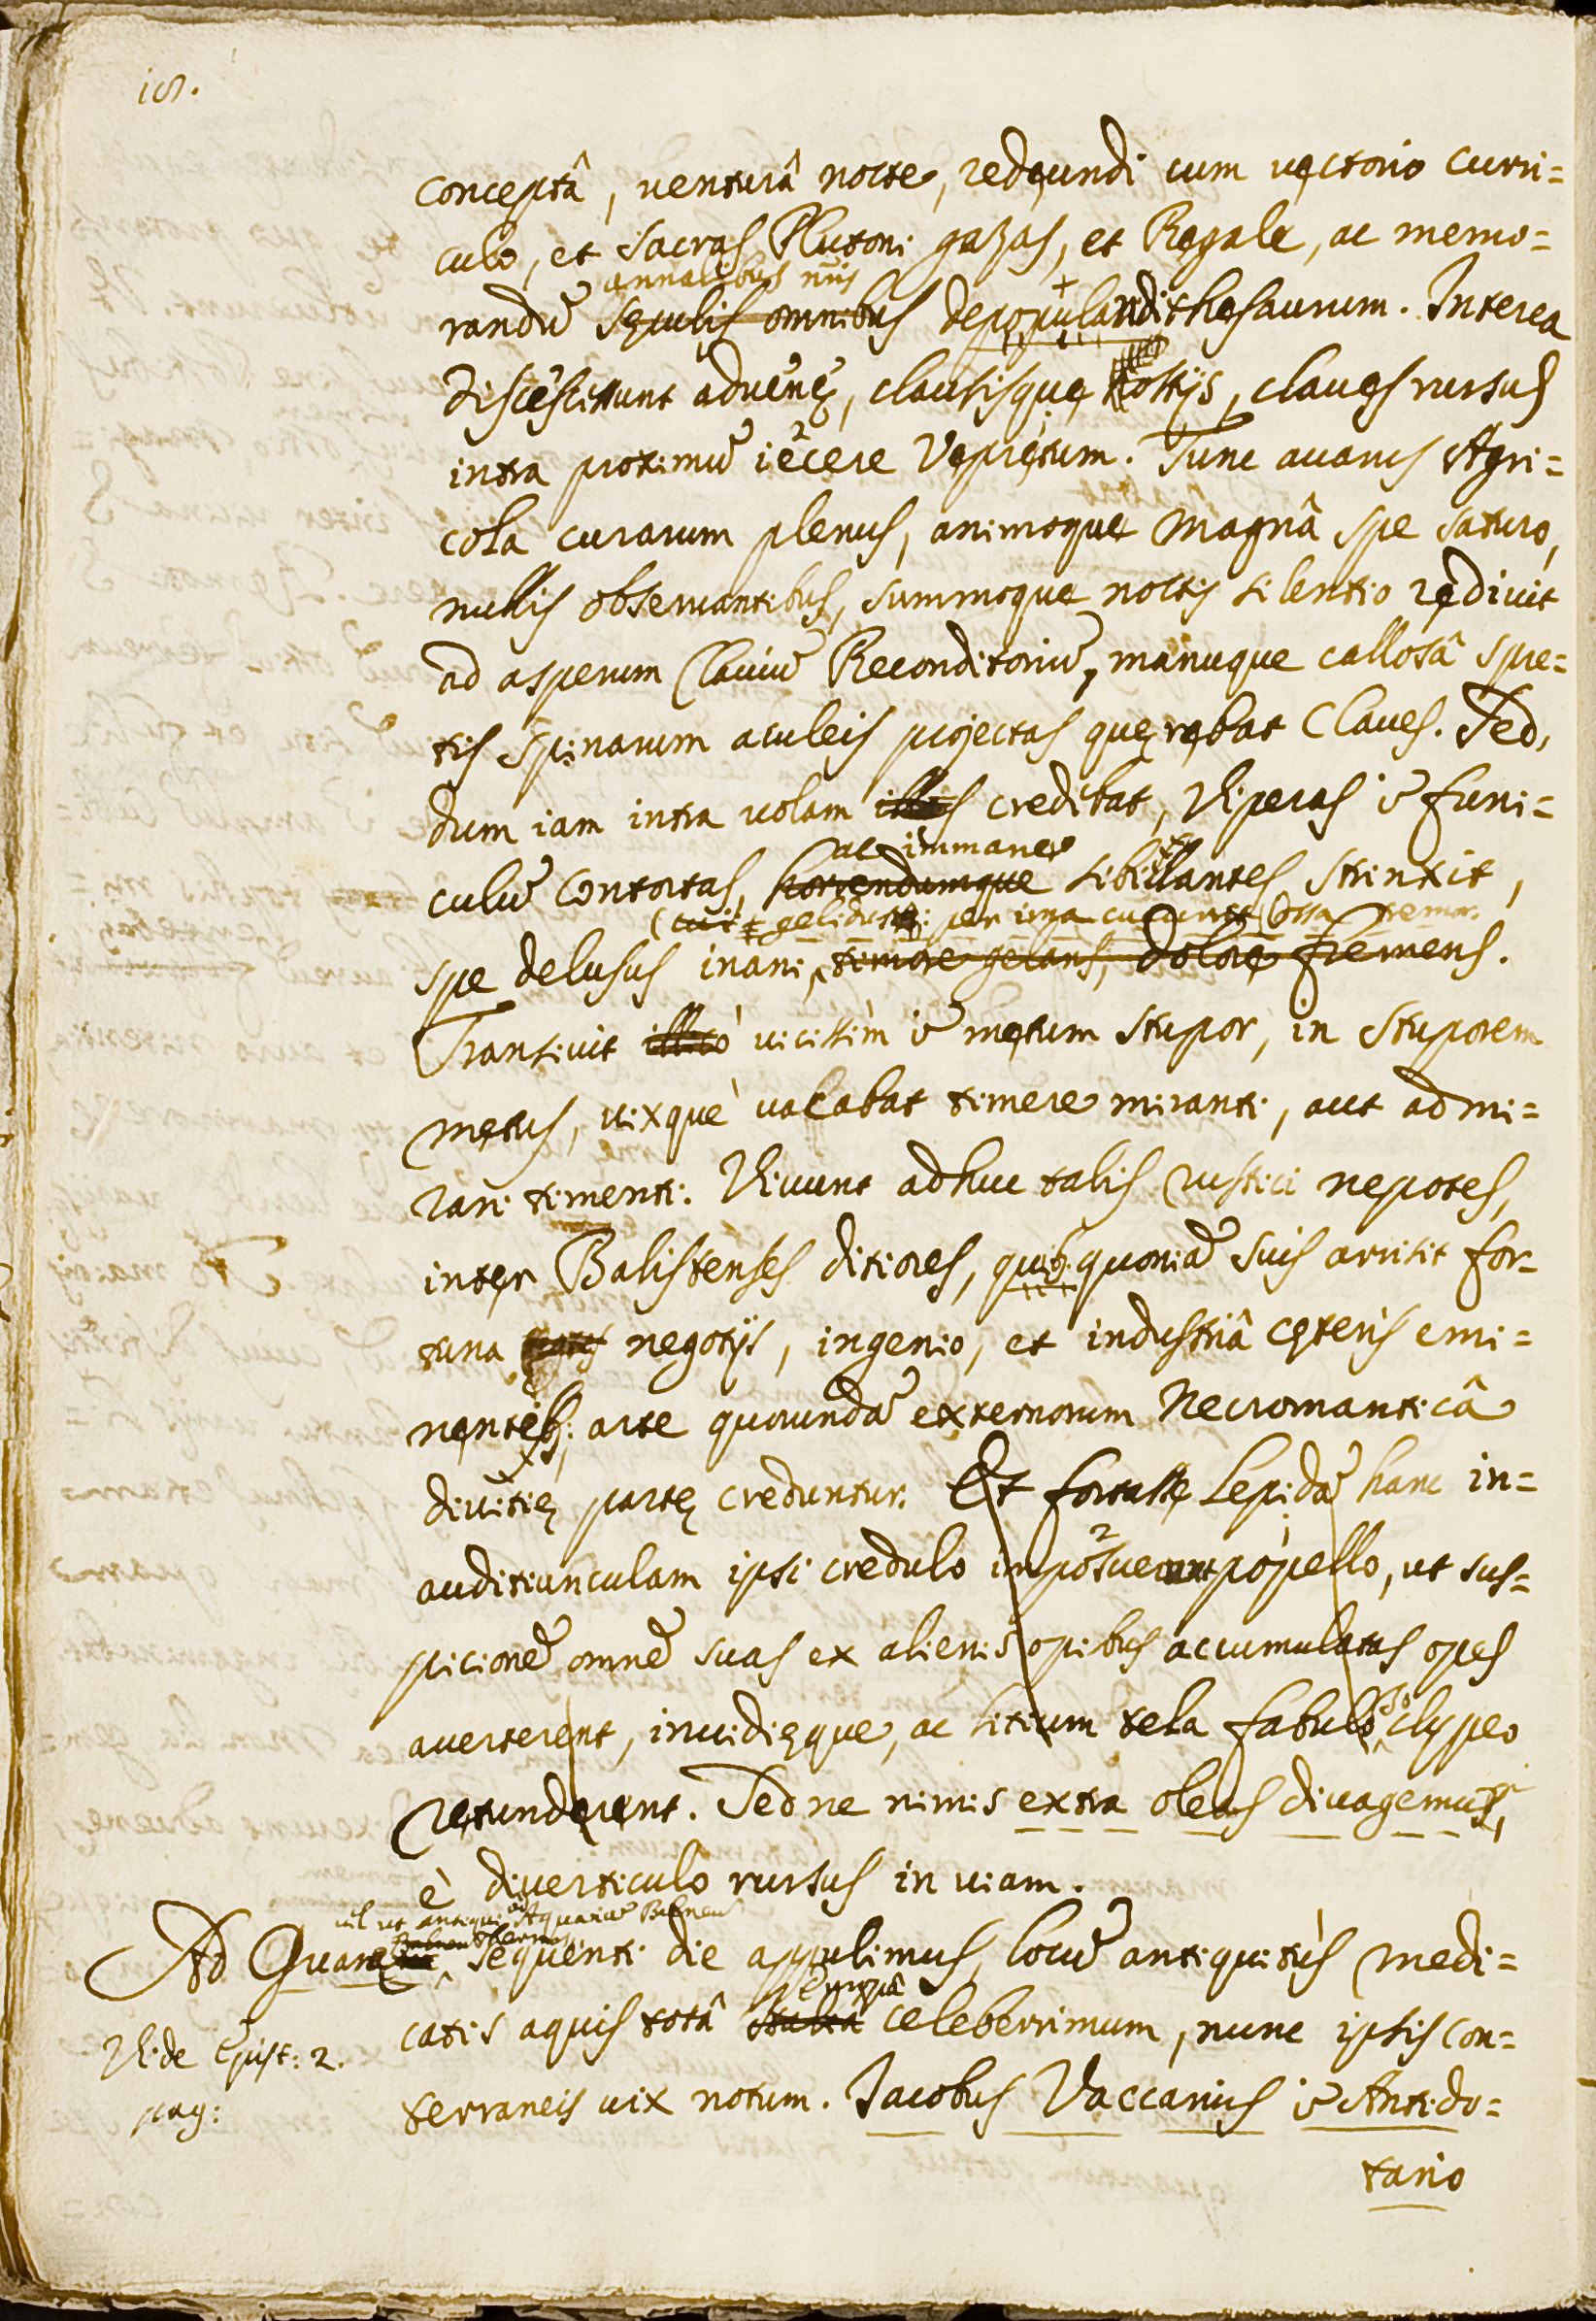 conceptâ, venturâ nocte, redeundi cum vectorio curri=
culo, et sacras Plutoni gazas, et Regale, ac memo=
annalibus
randū sęculis omnibus depopulandi thesaurum. Interea
Discessissunt advenę, clausisque hostijs, claves rursus
intra proximū iecere Vepretum. Tunc avarus Agri=
cola curarum plenus, animoque magnâ spe saturo,
nullis observantibus, summoque noctis silentio redivit
ad asperum Clauiū Reconditoriū, manuque callosâ spre=
tis spinarum aculeis projectas quęrebat Claves. Sed,
dum iam intra volam illas credibat, Viperas ĩ funi=
ac immane
culū contortas, horrendumque sibillantes strinxit,
(cui gelidus: per ima cucurrit ossa tremor.
spe delusus inani, timore gelans, dolore fremens.
Transivit illicò vicissìm ĩ metum stupor, in stuporem
metus, vixquè vacabat timere miranti, aut admi=
rari timenti. Vivunt adhuc talis rustici nepotes,
inter Balistenses ditiores, quib. quoniā suis arrisit for=
tuna negotijs, ingenio, et industriâ cęteris emi=
nentib; arte quorundā externorum Necromanticâ
divitię partę creduntur. Et fortasse Lepidā hanc in=
auditiunculam ipsi credulo imposuerunt popello, ut sus=
picionē omnē suas ex alienis opibus accumulatas opes
averterent, invidięque, ac litium tela fabuloso clypeo
retunderent. Sed ne nimis extra oleas divagemur,
è diverticulo rursus in viam.
vel ut antiqui ad Aquariū Balneū
Ad Quaram sequenti die appulimus, locū antiquitùs medi=
Etruriâ
catis aquis totâ Italiâ celeberrimum, nunc ipsis con=
Vide Epist: 2.
pag:
terraneis vix notum. Jacobus Vaccarius ĩ Antido=
tario